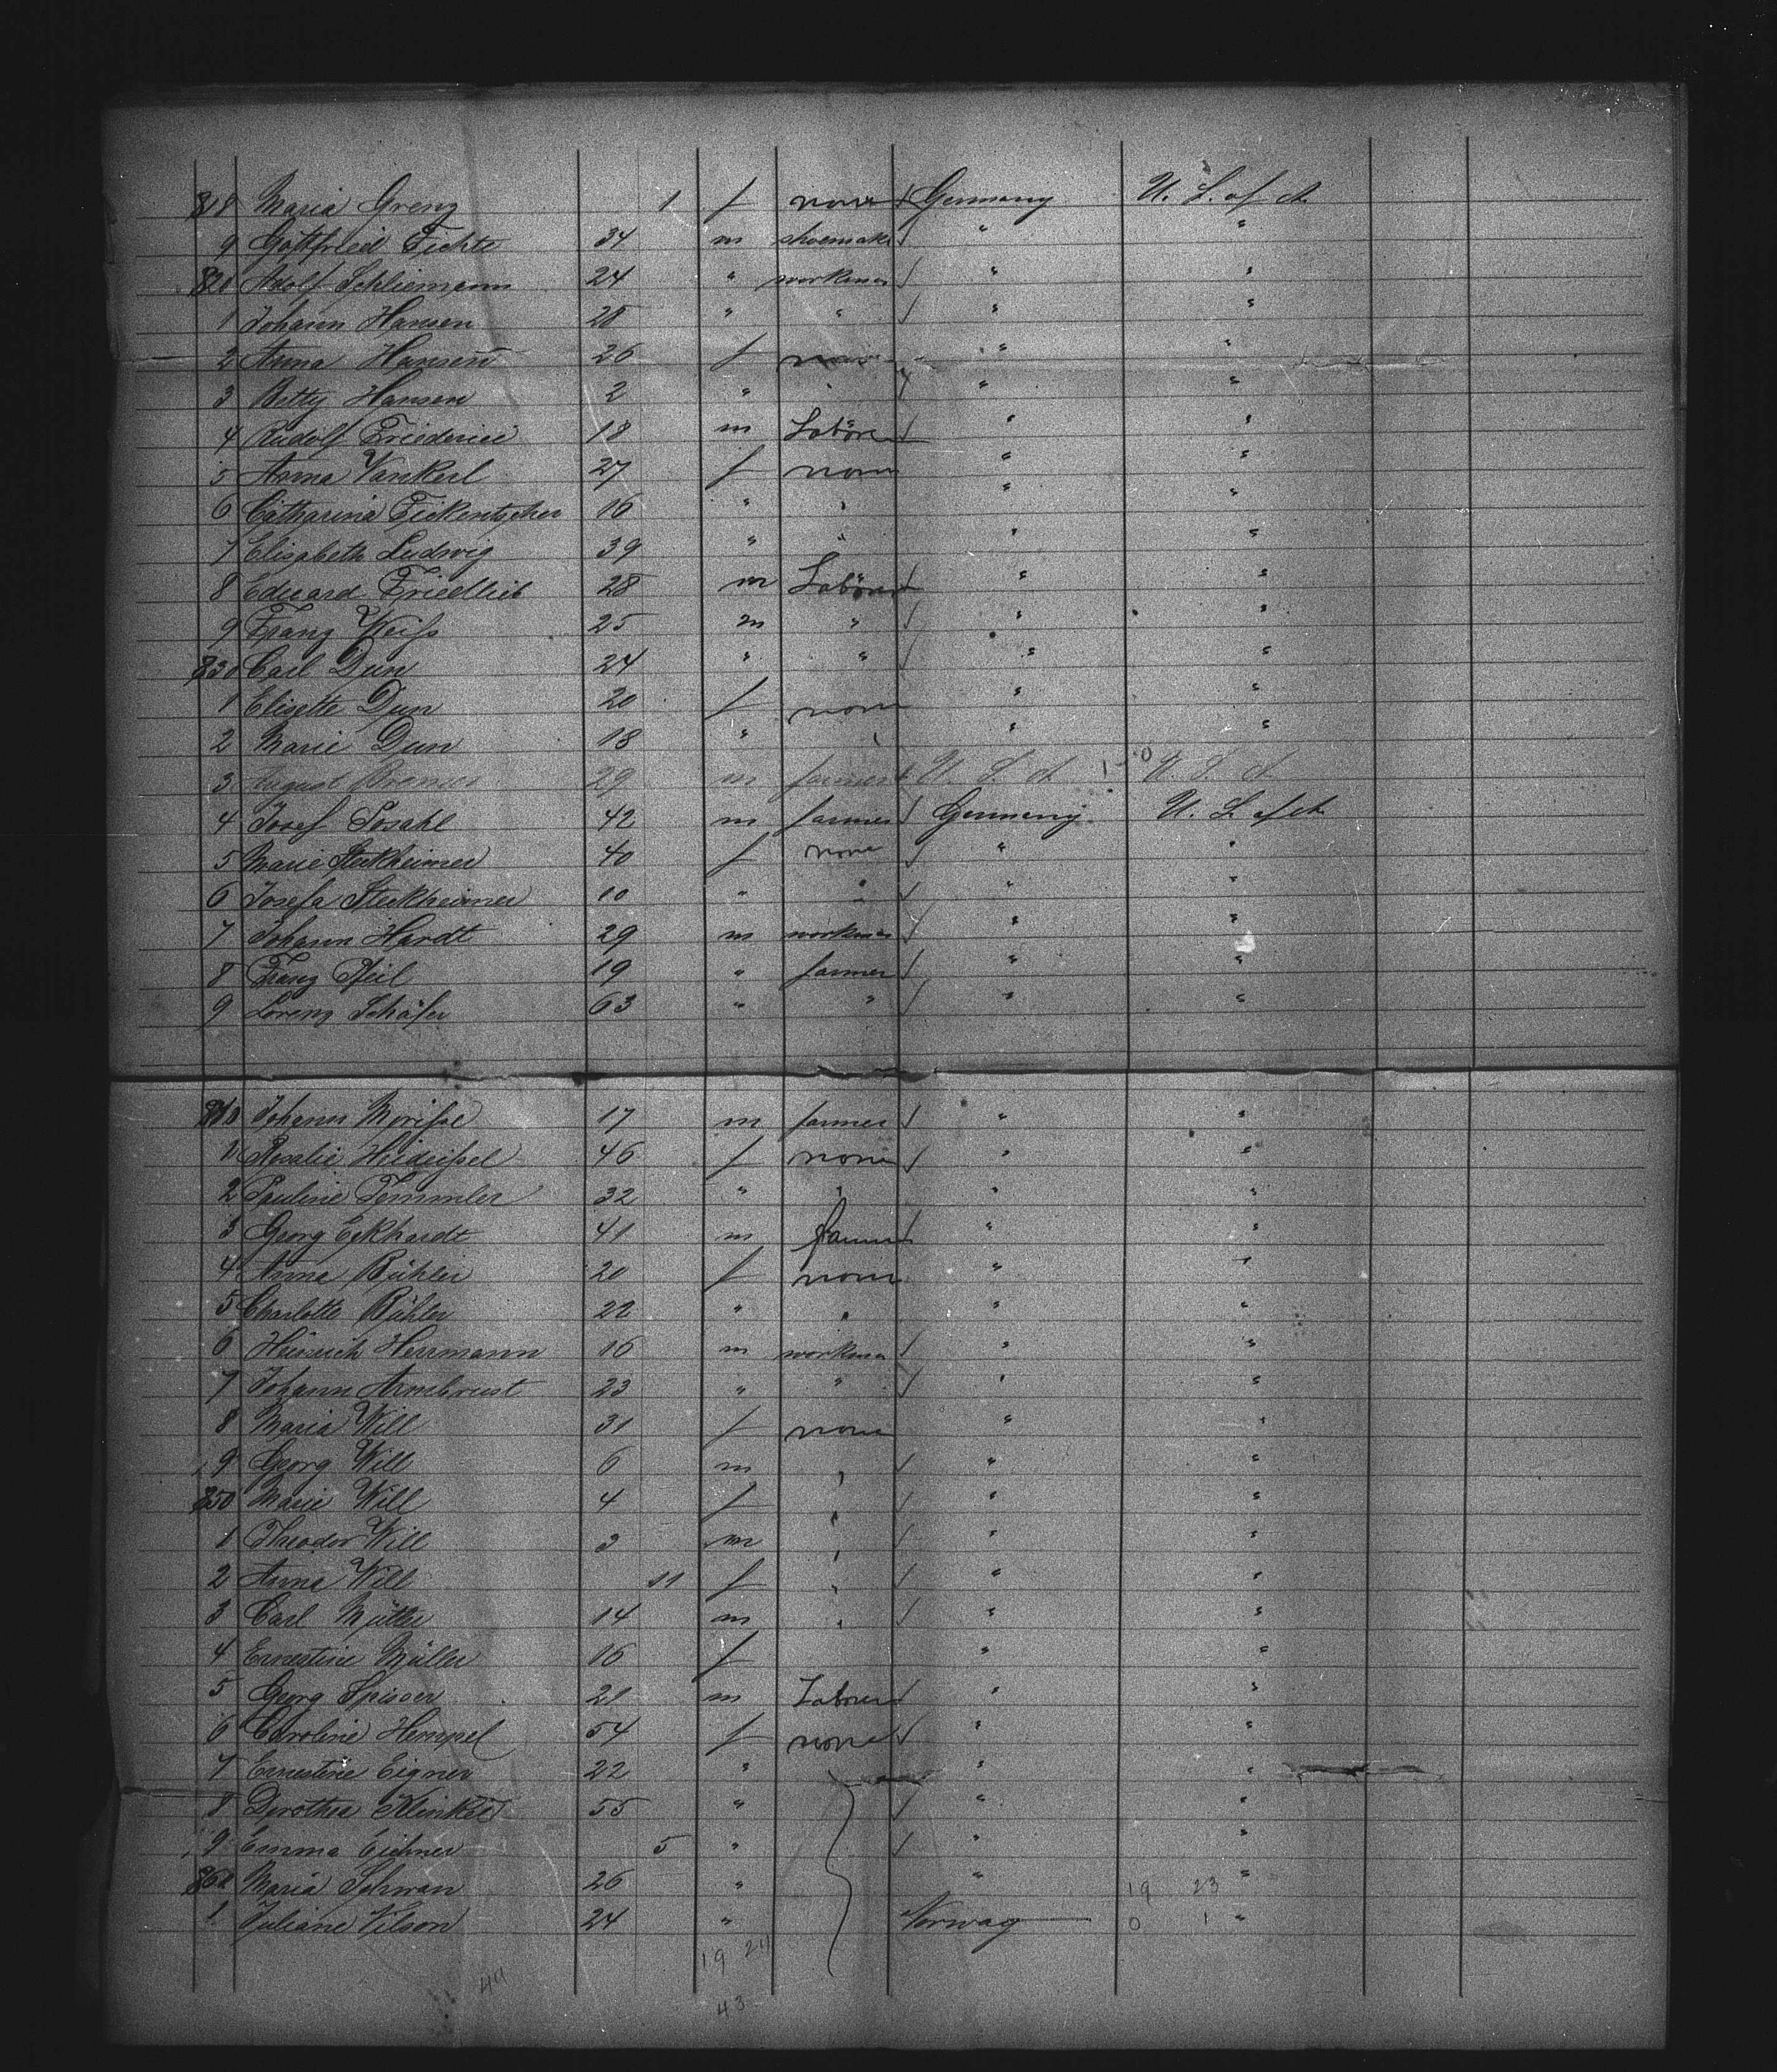 818 Maria Grenz 1 f none Germany U. S. of A.
9 Gottfried Fichte 34 m shoemaker " "
820 Adolf Schliemann 24 " workman " "
1 Johann Hansen 28 " " " "
2 Anna Hansen 26 f none " "
3 Betty Hansen 2 " " " "
4 Rudolf Friederici 18 m Laborer " "
5 Anna Vankerl 27 f none " "
6 Catharina Fickentscher 16 " " " "
7 Elisabeth Ludwig 39 " " " "
8 Eduard Friedlieb 28 m Laborer " "
9 Franz Weiss 25 m " " "
830 Carl Dun 24 " " " "
1 Elisette Dun 20 f none " "
2 Marie Dun 18 " " " "
3 August Bremer 29 m farmer U. S. A. U. S. A.
4 Josef Posahl 42 m farmer Germany U. S. of A.
5 Marie Steckheimer 40 f none " "
6 Josefa Steckheimer 10 " " " "
7 Johann Hardt 29 m workman " "
8 Franz Pfeil 19 " farmer " "
9 Lorenz Schäfer 63 " " " "
840 Johann Morisse 17 m farmer " "
1 Rosalie 46 f none " "
2 Pauline Temmler 32 " " " "
3 Georg Eckhardt 41 m farmer " "
4 Anna Bühler 20 f none " "
5 Charlotte Bühler 22 " " " "
6 Heinrich Herrmann 16 m workman " "
7 Johann Armbrust 23 " " " "
8 Maria Will 31 f none " "
9 Georg Will 6 m " " "
850 Marie Will 4 f " " "
1 Theodor Will 3 m " " "
2 Anna Will 11 f " " "
3 Carl Müller 14 m " " "
4 Ernestine Müller 16 f " "
5 Georg Spisser 21 m Laborer " "
6 Caroline Hempel 54 f none " "
7 Ernestine Eigner 22 " " "
8 Dorothea Klinker 55 " " "
9 Emma Eichner 5 " " "
860 Maria Schwan 26 " " "
19 23
1 Juliane Nilson 24 " Norway 0 1 "
19 24
44
43